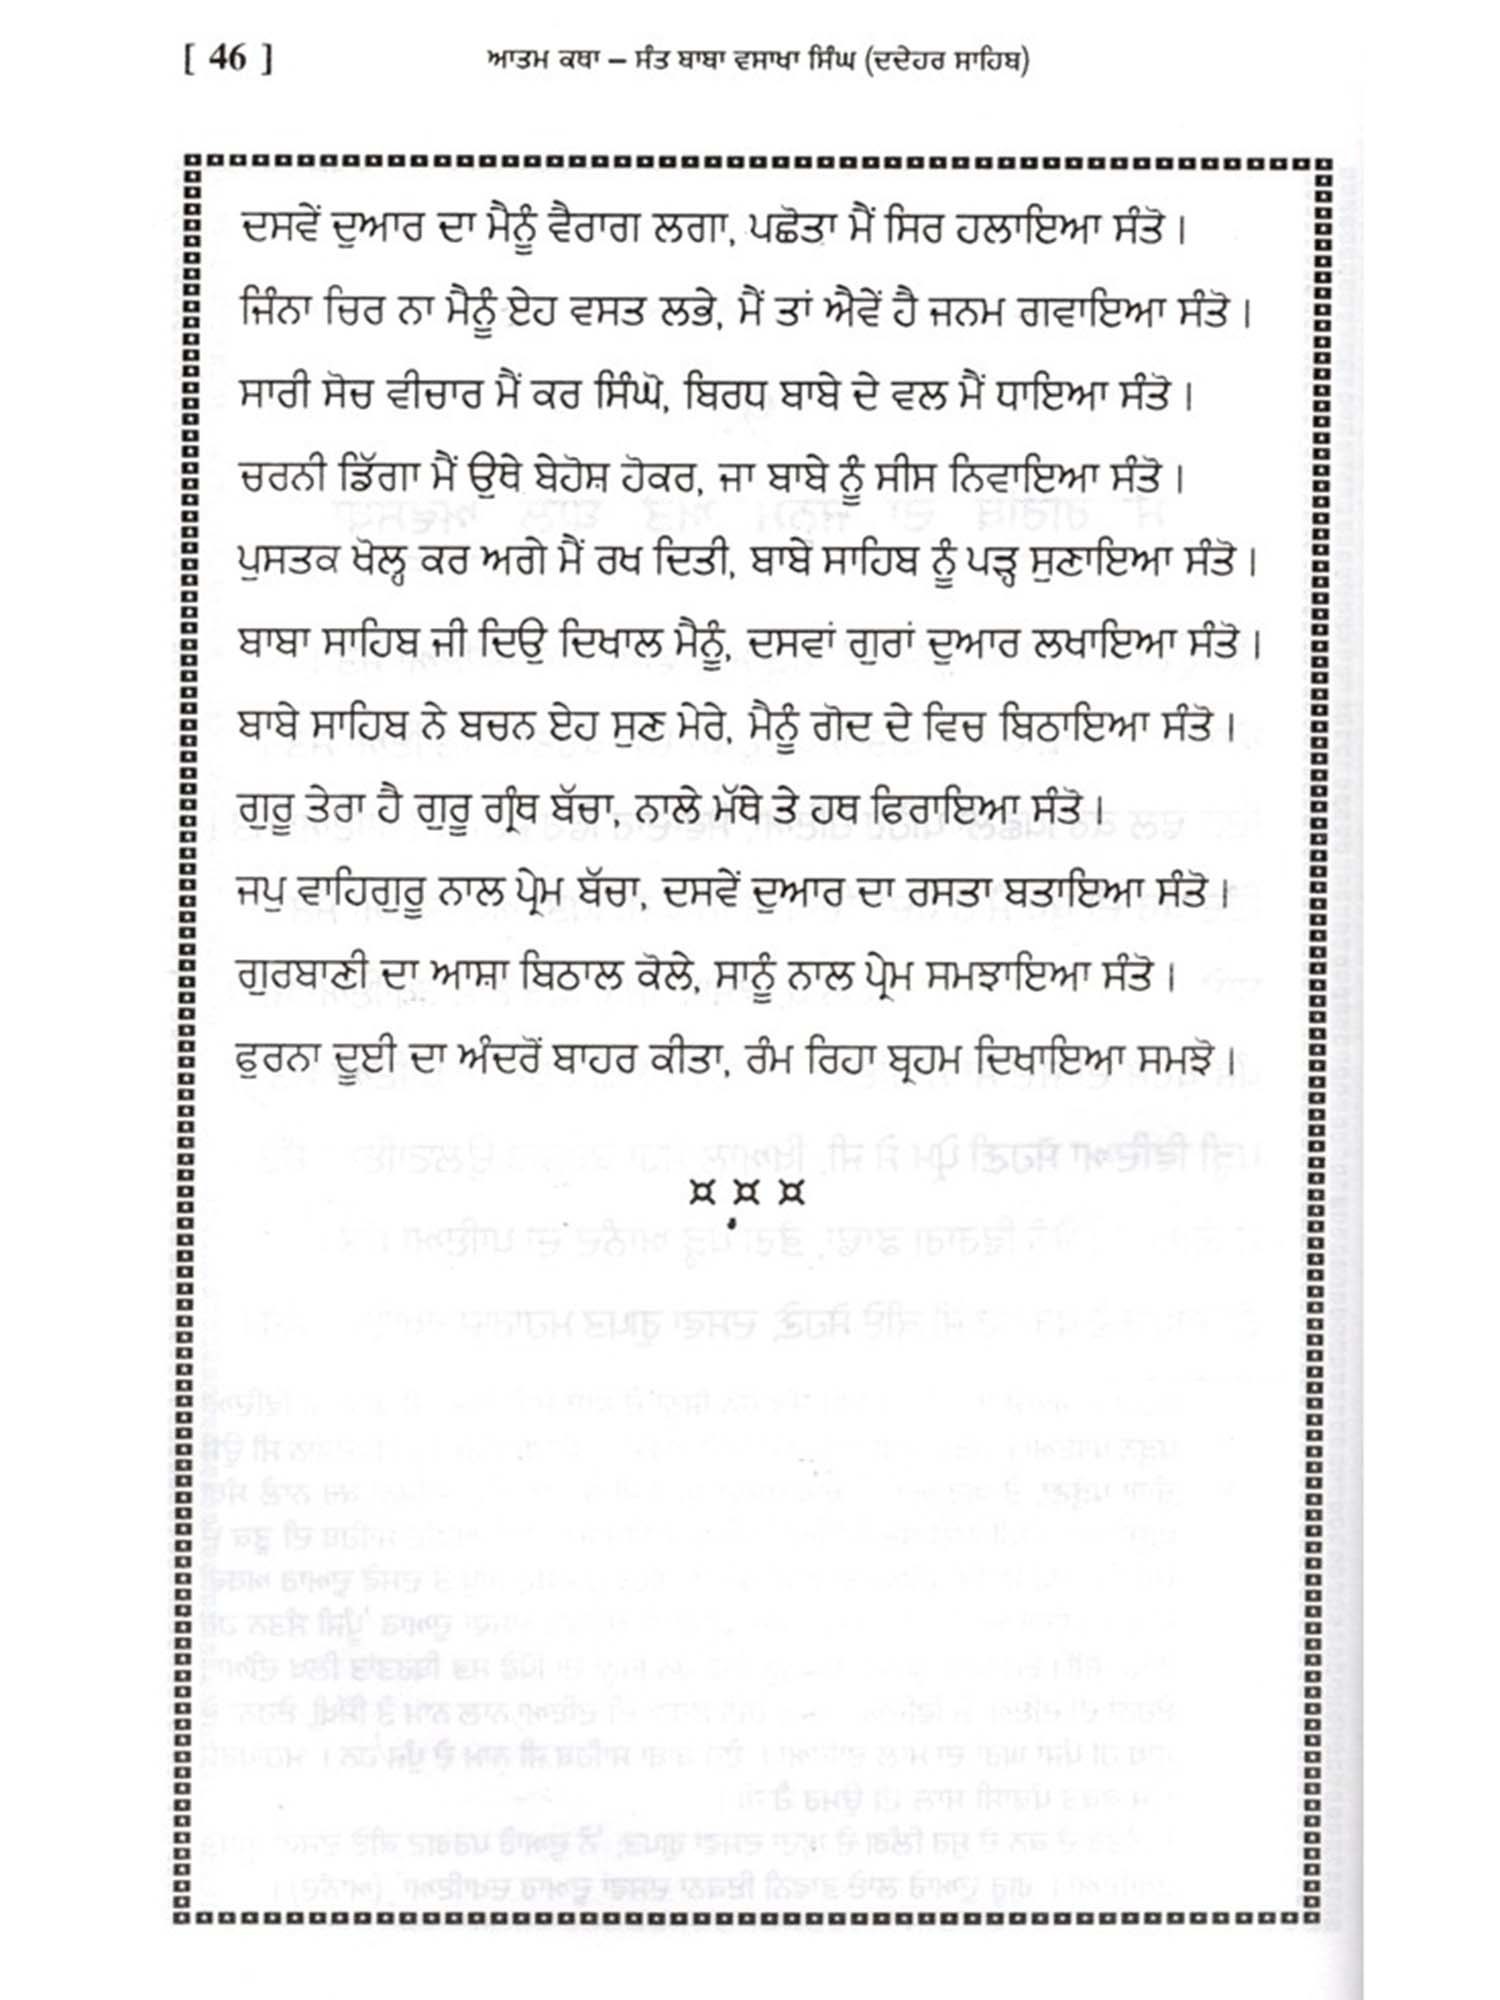 [ 46 ] ਆਤਮ ਕਥਾ – ਸੰਤ ਬਾਬਾ ਵਸਾਖਾ ਸਿੰਘ (ਦਦੇਹਰ ਸਾਹਿਬ)
ਦਸਵੇਂ ਦੁਆਰ ਦਾ ਮੈਨੂੰ ਵੈਰਾਗ ਲਗਾ, ਪਛੋਤਾ ਮੈਂ ਸਿਰ ਹਲਾਇਆ ਸੰਤੋ।
ਜਿੰਨਾ ਚਿਰ ਨਾ ਮੈਨੂੰ ਏਹ ਵਸਤ ਲਭੇ, ਮੈਂ ਤਾਂ ਐਵੇਂ ਹੈ ਜਨਮ ਗਵਾਇਆ ਸੰਤੋ।
ਸਾਰੀ ਸੋਚ ਵੀਚਾਰ ਮੈਂ ਕਰ ਸਿੰਘੋ, ਬਿਰਧ ਬਾਬੇ ਦੇ ਵਲ ਮੈਂ ਧਾਇਆ ਸੰਤੋ।
ਚਰਨੀ ਡਿੱਗਾ ਮੈਂ ਉਥੇ ਬੇਹੋਸ਼ ਹੋਕਰ, ਜਾ ਬਾਬੇ ਨੂੰ ਸੀਸ ਨਿਵਾਇਆ ਸੰਤੋ।
ਪੁਸਤਕ ਖੋਲ੍ਹ ਕਰ ਅਗੇ ਮੈਂ ਰਖ ਦਿਤੀ, ਬਾਬੇ ਸਾਹਿਬ ਨੂੰ ਪੜ੍ਹ ਸੁਣਾਇਆ ਸੰਤੋ।
ਬਾਬਾ ਸਾਹਿਬ ਜੀ ਦਿਉ ਦਿਖਾਲ ਮੈਨੂੰ, ਦਸਵਾਂ ਗੁਰਾਂ ਦੁਆਰ ਲਖਾਇਆ ਸੰਤੋ।
ਬਾਬੇ ਸਾਹਿਬ ਨੇ ਬਚਨ ਏਹ ਸੁਣ ਮੇਰੇ, ਮੈਨੂੰ ਗੋਦ ਦੇ ਵਿਚ ਬਿਠਾਇਆ ਸੰਤੋ।
ਗੁਰੂ ਤੇਰਾ ਹੈ ਗੁਰੂ ਗ੍ਰੰਥ ਬੱਚਾ, ਨਾਲੇ ਮੱਥੇ ਤੇ ਹਥ ਫਿਰਾਇਆ ਸੰਤੋ।
ਜਪੁ ਵਾਹਿਗੁਰੂ ਨਾਲ ਪ੍ਰੇਮ ਬੱਚਾ, ਦਸਵੇਂ ਦੁਆਰ ਦਾ ਰਸਤਾ ਬਤਾਇਆ ਸੰਤੋ।
ਗੁਰਬਾਣੀ ਦਾ ਆਸ਼ਾ ਬਿਠਾਲ ਕੋਲੇ, ਸਾਨੂੰ ਨਾਲ ਪ੍ਰੇਮ ਸਮਝਾਇਆ ਸੰਤੋ।
ਫੁਰਨਾ ਦੂਈ ਦਾ ਅੰਦਰੋਂ ਬਾਹਰ ਕੀਤਾ, ਰੰਮ ਰਿਹਾ ਬ੍ਰਹਮ ਦਿਖਾਇਆ ਸਮਝੋ।
¤ ¤ ¤